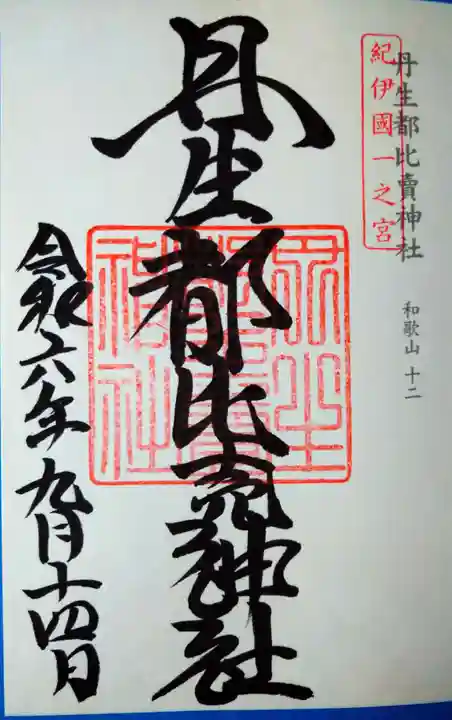 丹生都比賣神社
和歌山 十二
紀伊國一之宮
丹生都比売神社
令和六年九月十四日